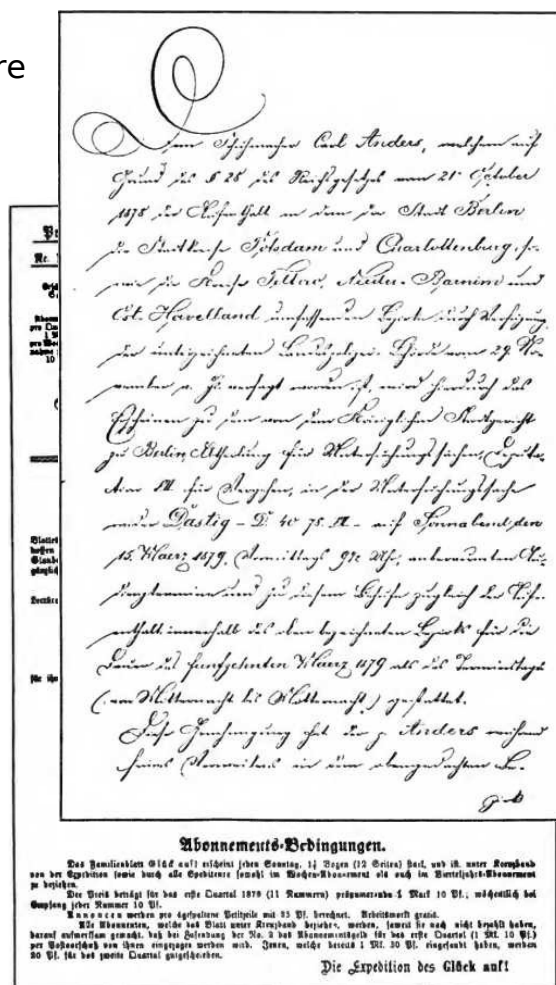 re
Dem Schuhmacher Carl Anders, welchem auf
Grund des § 28 des Reichsgesetzes vom 21. October
1878 der Aufenthalt in dem die Stadt Berlin
die Stadtkreise Potsdam und Charlottenburg, so-
wie die Kreise Teltow, Nieder-Barnim und
Ost-Havelland umfassenden Bezirke durch Verfügung
der unterzeichneten Landespolizei-Behörde vom 29. No-
vember v. Js. versagt worden ist, wird hierdurch das
Erscheinen zu dem von dem Königlichen Stadtgericht
zu Berlin, Abtheilung für Untersuchungssachen, Deputa-
tion VII für Vergehen, in der Untersuchungssache
wider Dastig – D. 40 78. VII – auf Sonnabend, den
15. Maerz 1879, Vormittags 9½ Uhr, anberaumten Au-
dienztermine und zu diesem Behufe zugleich der Aufe-
enthalt innerhalb des oben bezeichneten Bezirks für die
Dauer des fünfzehnten Maerz 1879 als des Terminstags
(von Mitternacht bis Mitternacht) gestattet.
Diese Genehmigung hat der p. Anders während
seines Verweilens in dem obengedachten Be-
zirk
Nr.
Abonnements-Bedingungen.
Das Familienblatt Glück auf! erscheint jeden Sonntag, 1½ Bogen (12 Seiten) stark, und ist unter Kreuzband
von der Expedition sowie durch alle Spediteure sowohl im Wochen-Abonnement als auch im Vierteljahrs-Abonnement
zu beziehen.
Der Preis beträgt für das erste Quartal 1879 (11 Nummern) pränumerando 1 Mark 10 Pf.; wöchentlich bei
Empfang jeder Nummer 10 Pf.
Annoncen werden pro 4gespaltene Petitzeile mit 25 Pf. berechnet. Arbeitsmarkt gratis.
Alle Abonnenten, welche das Blatt unter Kreuzband beziehen, werden, soweit sie noch nicht bezahlt haben,
darauf aufmerksam gemacht, daß bei Zusendung der No. 2 das Abonnementsgeld für das erste Quartal (1 Mk. 10 Pf.)
per Postvorschuß von ihnen eingezogen werden wird. Jenen, welche bereits 1 Mk. 30 Pf. eingesandt haben, werden
20 Pf. für das zweite Quartal gutgeschrieben.
Die Expedition des Glück auf!